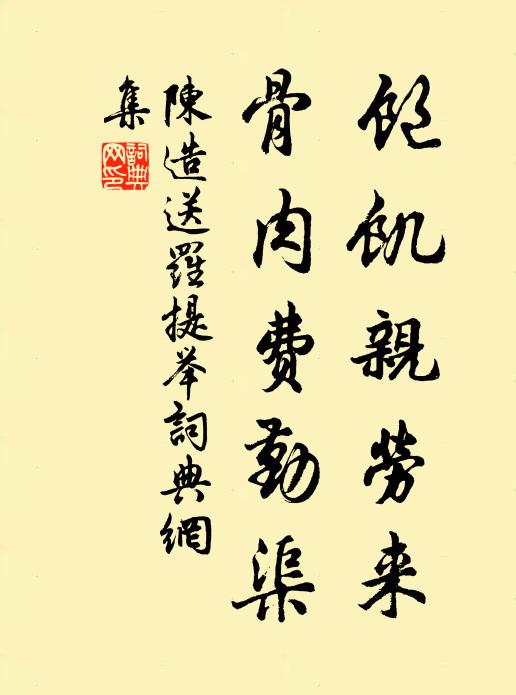 饱飢親勞来
骨肉費勤渠
陳造送羅提举詞典網
集
詞典
网印